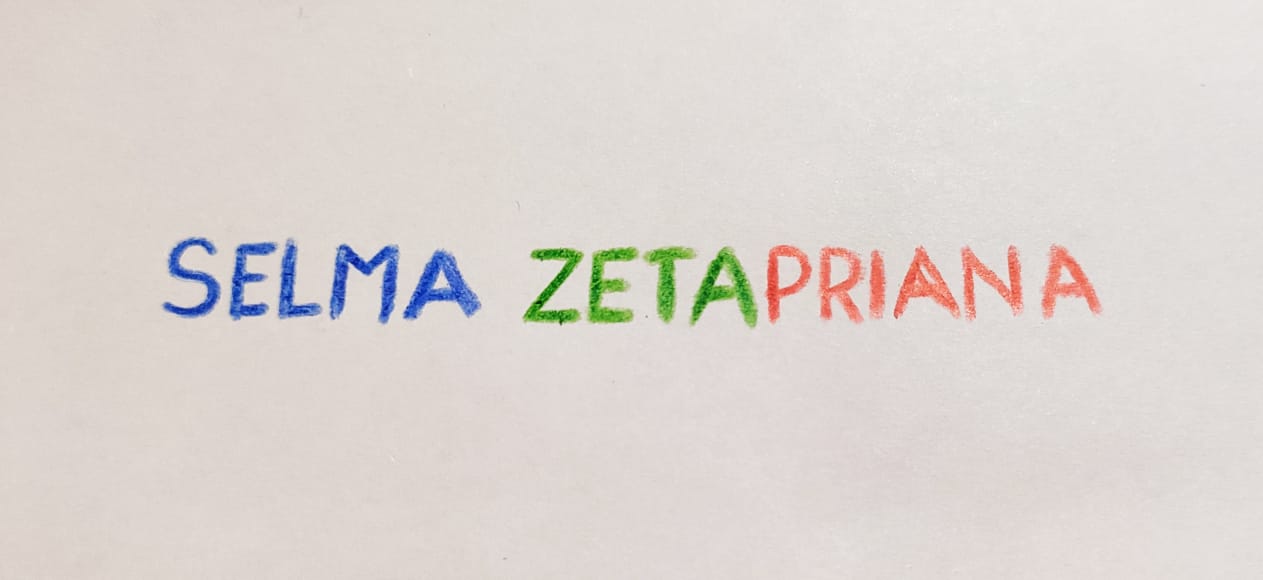 SELMA ZETAPRIANA